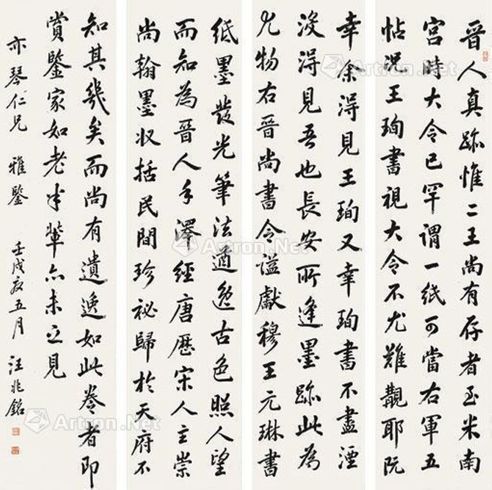 晉人真跡惟二王尚有存者至米南
宮時大令已罕謂一紙可當右軍五
帖況王珣書視大令不尤難覯耶阮
幸余得見王珣又幸珣書不盡湮
沒得見吾也長安所逢墨跡此為
尤物右晉尚書令謚獻穆王元琳書
紙墨發光筆法遒逸古色照人望
而知為晉人手澤經唐歷宋人主崇
尚翰墨收括民間珍祕歸於天府不
知其幾矣而尚有遺逸如此卷者即
賞鑒家如老米輩亦未之見
亦琴仁兄 雅鑒 壬戌夏五月 汪兆銘
Artron.Net